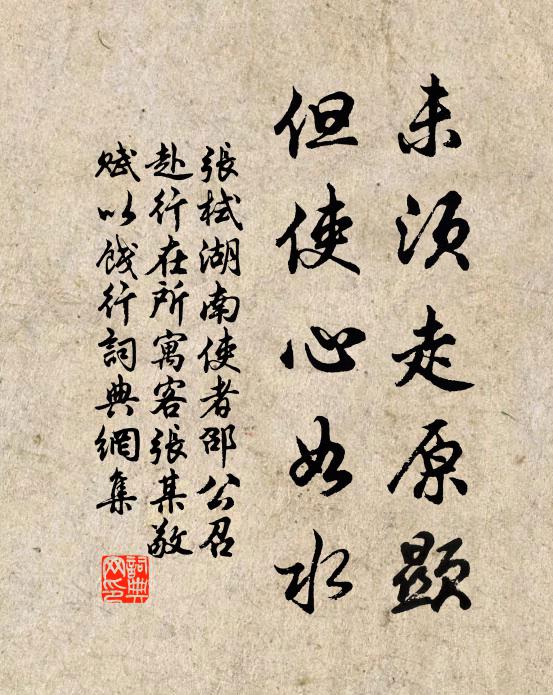 未須走原顯
但使心如水
張栻湖南使者邵公召
赴行在所寓客張某敬
賦以餞行詞典網集
詞典網印